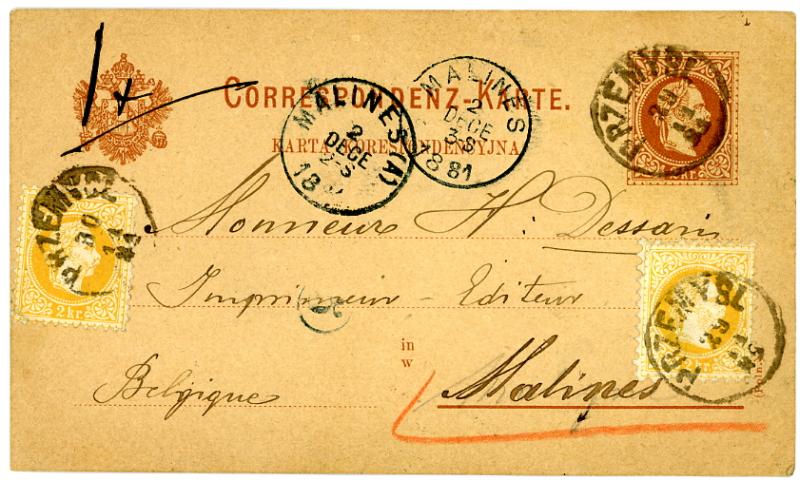 1
CORRESPONDENZ-KARTE.
KARTA KORESPONDENCYJNA
MALINES (A)
2
DECE
2-S
18
MALINES
2
DECE
3-S
1881
PRZEMYSL
PRZEMYSL
30
2 kr.
PRZEMYSL
kr.
Monsieur H: Dessain
Imprimeur-Editeur
in
w
Belgique
Malines
(Poln.)